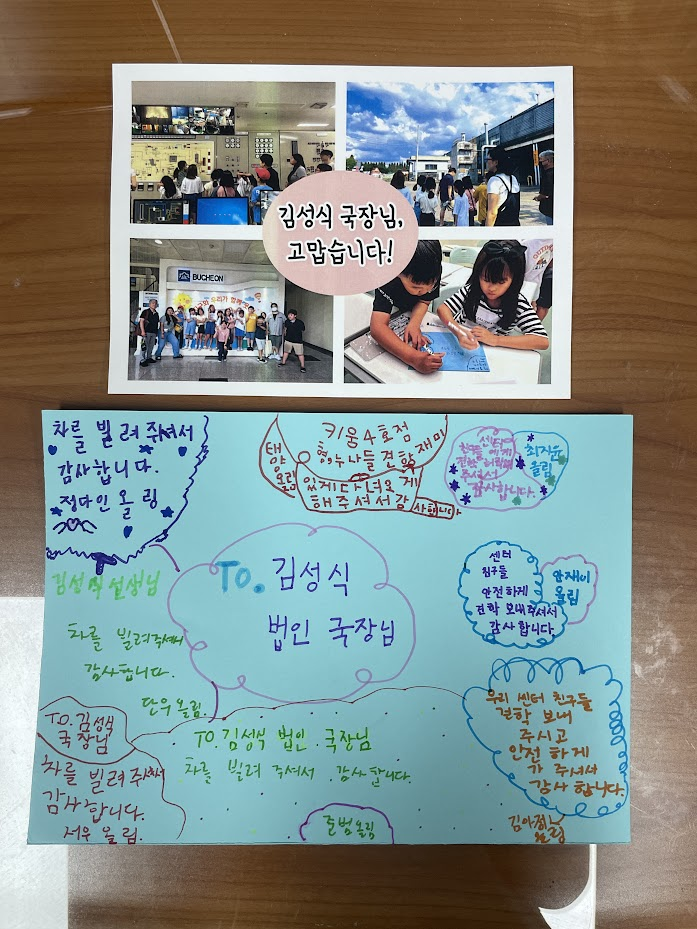 김성식 국장님,
고맙습니다!
BUCHEON
차를 빌려주셔서
감사합니다.
정다인 올림
키움4호점
형,누나들 견학
재미
있게 다녀오게
해주셔서감
사합니다
태양
올림
센터의
친구들에게
견학 허락해
주셔서
감사합니다.
최지윤
올림
To. 김성식
법인 국장님
센터
친구들
안전하게
견학 보내주셔서
감사합니다.
안재이
올림
김성식 선생님
차를 빌려주셔서
감사합니다.
단우 올림.
TO.김성식
국장님
차를 빌려주셔서
감사합니다.
서우 올림.
TO.김성식 법인 국장님
차를 빌려 주셔서 감사합니다.
준범올림
우리 센터 친구들
견학 보내
주시고
안전하게
가 주셔서
감사합니다.
올림